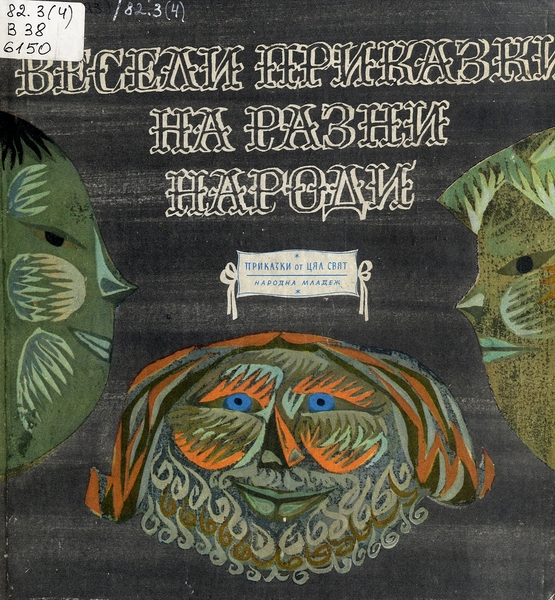 82.3(4)
В 38
6150
/82.3(4)
ВЕСЕЛИ ПРИКАЗКИ
НА РАЗНИ
НАРОДИ
ПРИКАЗКИ от ЦЯЛ СВЯТ
НАРОДНА МЛАДЕЖ